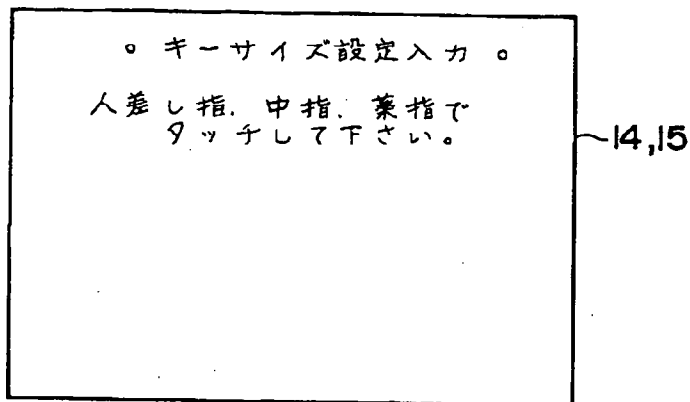 。キーサイズ設定入力。
人差し指. 中指. 薬指で
タッチして下さい。
14,15